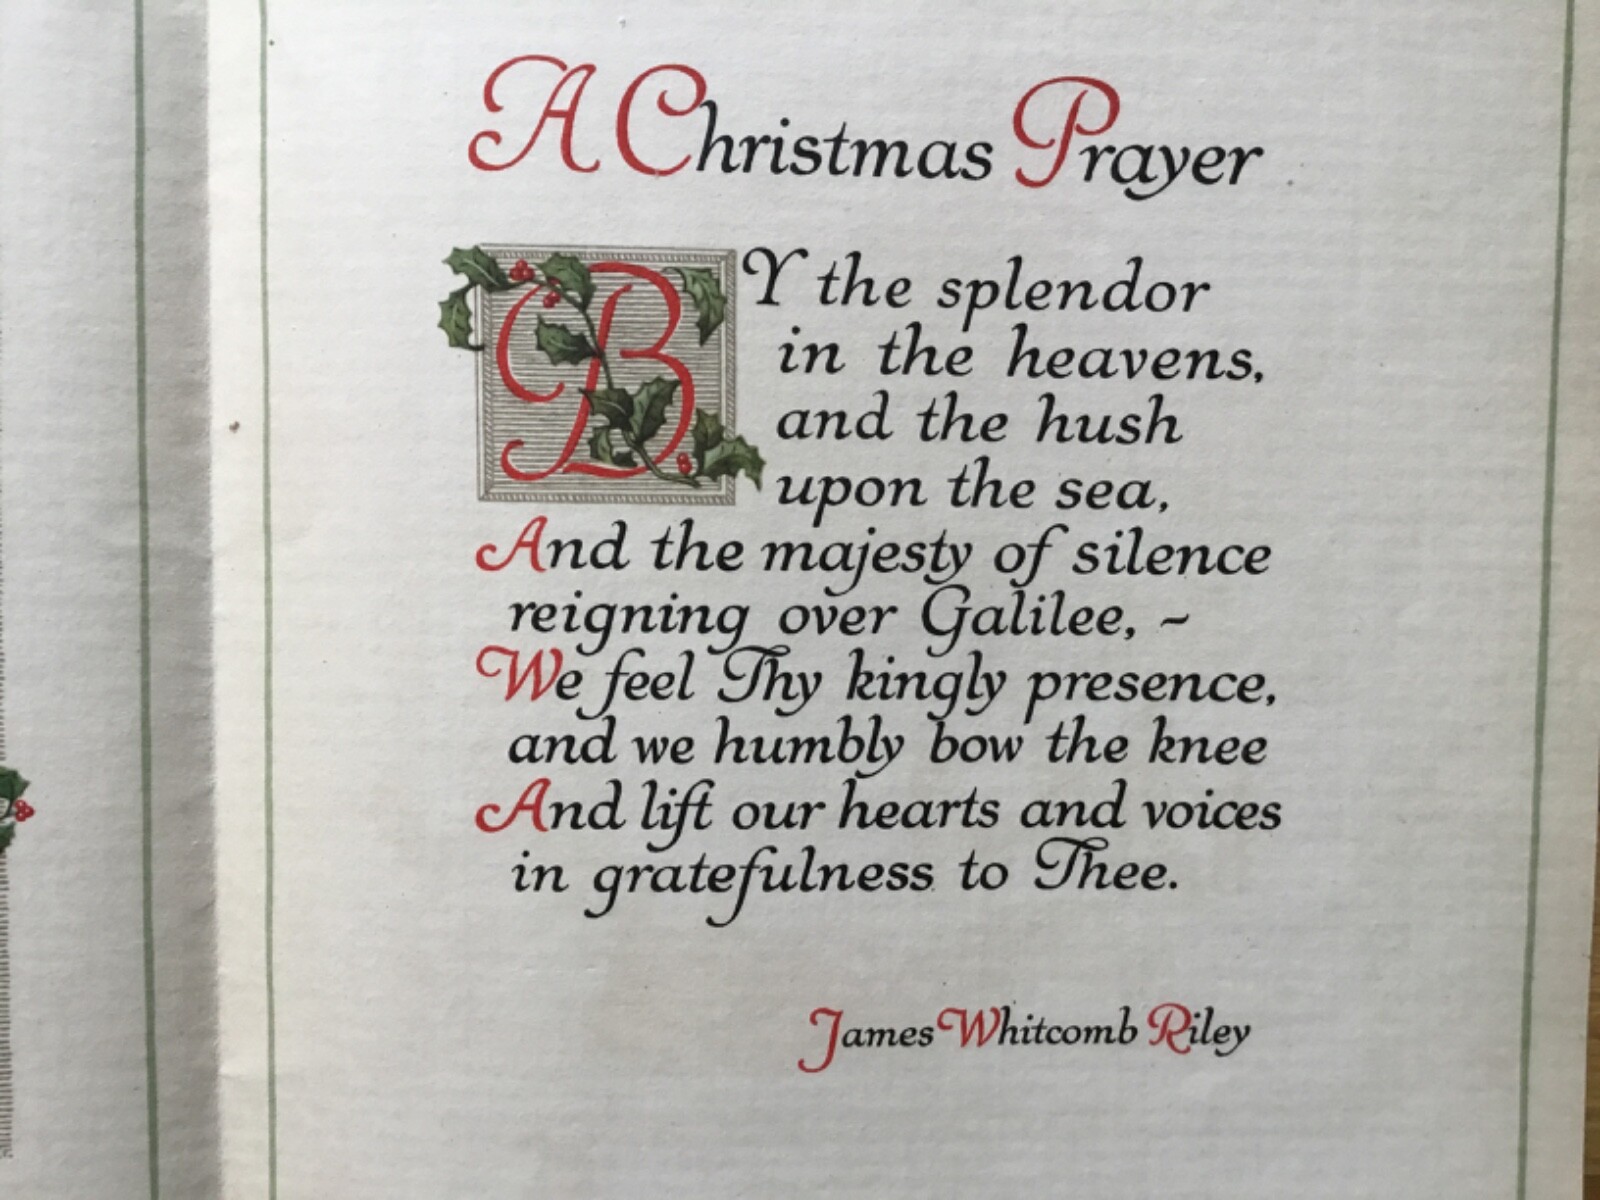 A Christmas Prayer
BY the splendor
in the heavens,
and the hush
upon the sea,
And the majesty of silence
reigning over Galilee, ~
We feel Thy kingly presence,
and we humbly bow the knee
And lift our hearts and voices
in gratefulness to Thee.
James Whitcomb Riley